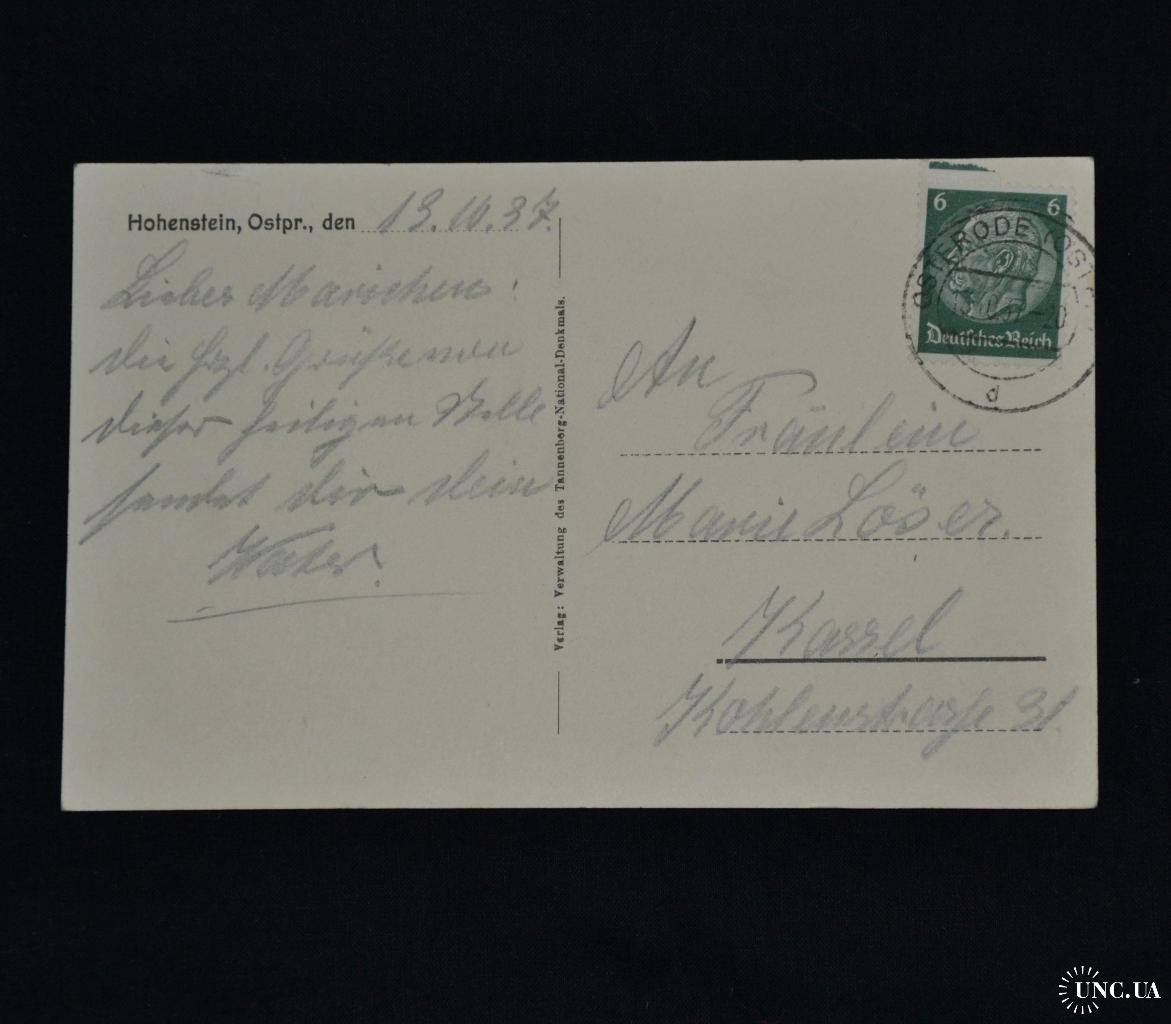 Hohenstein, Ostpr., den 13.10.37.
Liebes Mariechen:
die hzl. Grüße von
dieser heiligen Stelle
sendet dir dein
Vater.
Verlag: Verwaltung des Tannenberg-National-Denkmals.
6 6
Deutsches Reich
OSTERODE (OST
d
An
Fräulein
Marie Löser.
Kassel
Kohlenstraße 31.
UNC.UA